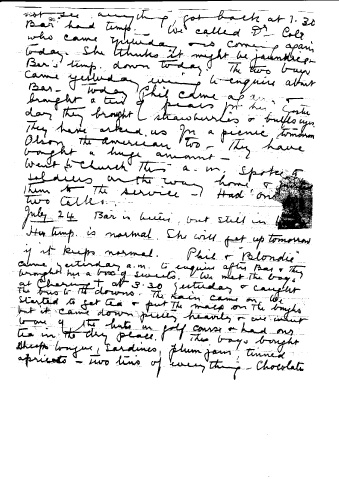 not see anything got back at 7.30
Bar's had temp. - We called Dr. Cole
who came yesterday is coming again
today. She thinks it might be jaundice -
Bar's temp. down today. The two boys
came yesterday evening to enquire about
Bar - today Phil came again
brought a tin of pears for her.
day they brought strawberries &
They have asked us for a picnic tomorrow
Olson the American too - They have
bought a huge amount -
Went to church this a.m. Spoke to
soldiers on the way home &
them to the service - Had our
two talks.
July 24 Bar is better, but still in
Her temp. is normal. She will get up tomorrow
if it keeps normal. Phil & Blondie
came yesterday a.m. to enquire after Bar & they
brought her a box of sweets. We met the boys
at at 3.30 yesterday & caught
the bus to the downs. The rain came on. We
started to get tea & put the macs on the bushes
but it came down pretty heavily & we went
to one of the huts on golf course & had our
tea in the dry place. The boys bought
sheeps tongue, Sardines, plum jam, tinned
apricots - two tins of everything - Chocolate